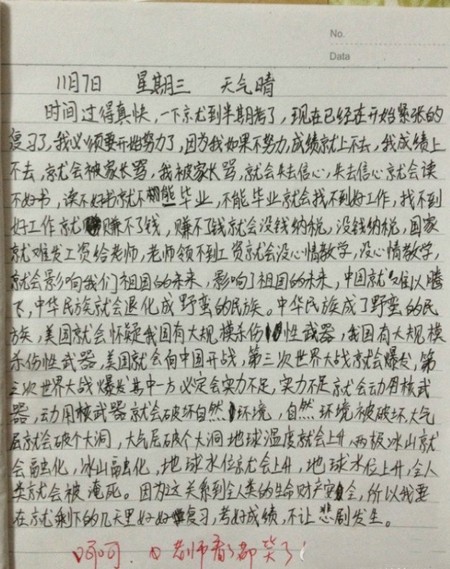 No.
Data
11月7日 星期三 天气晴
时间过得真快,一下就到半期考了,现在已经在开始紧张的
复习了,我必须要开始努力了,因为我如果不努力,成绩就上不去,我成绩上
不去,就会被家长骂,我被家长骂,就会失去信心,失去信心就会读
不好书,读不好书就不能毕业,不能毕业就会找不到好工作,找不到
好工作就赚不了钱,赚不了钱就会没钱纳税,没钱纳税,国家
就难发工资给老师,老师领不到工资就会没心情教学,没心情教学,
就会影响我们祖国的未来,影响了祖国的未来,中国就难以腾
飞,中华民族就会退化成野蛮的民族。中华民族成了野蛮的民
族,美国就会怀疑我国有大规模杀伤性武器,我国有大规模
杀伤性武器,美国就会向中国开战,第三次世界大战就会爆发,第
三次世界大战爆发其中一方必定会实力不足,实力不足就会动用核武
器,动用核武器就会破坏自然环境,自然环境被破坏大气
层就会破个大洞,大气层破个大洞地球温度就会上升,两极冰山就
会融化,冰山融化,地球水位就会上升,地球水位上升,全人
类就会被淹死。因为这关系到全人类的生命财产安全,所以我要
在就剩下的几天里好好复习,考好成绩,不让悲剧发生。
呵呵。老师看了都笑了!